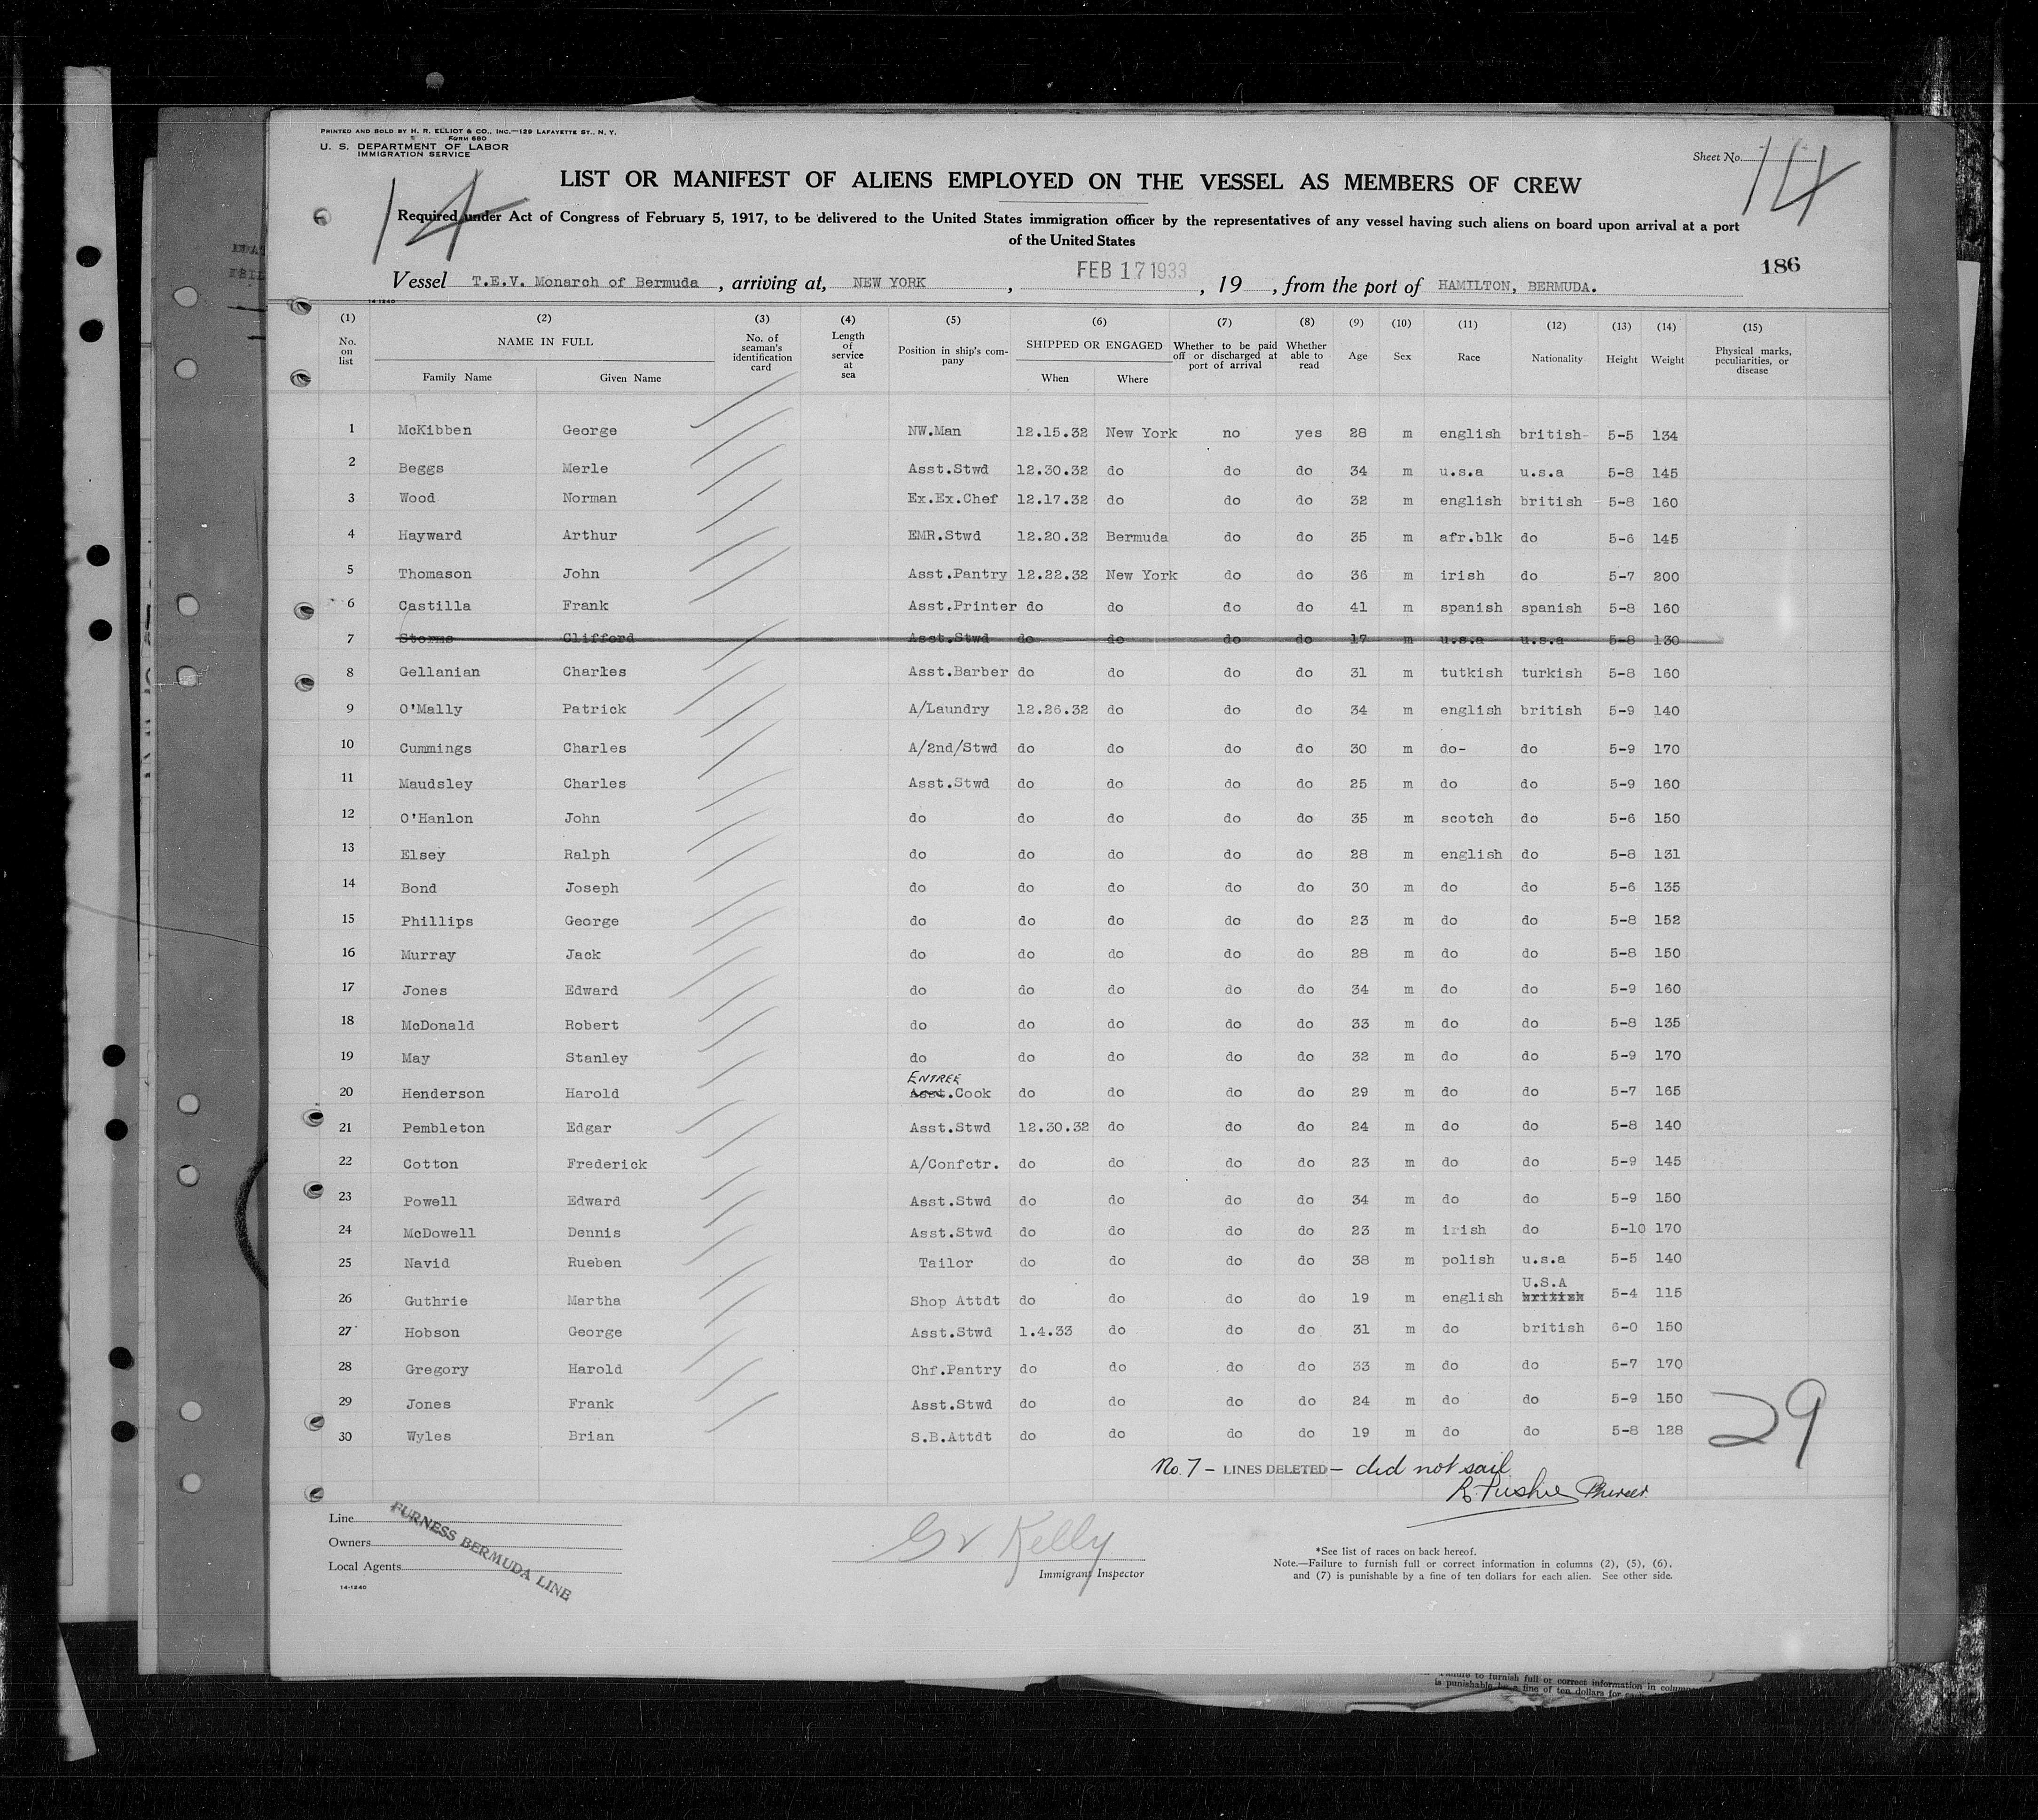 PRINTED AND SOLD BY H. R. ELLIOT & CO., INC.—129 LAFAYETTE ST., N. Y.
FORM 680
U. S. DEPARTMENT OF LABOR
IMMIGRATION SERVICE
Sheet No. 14
14
LIST OR MANIFEST OF ALIENS EMPLOYED ON THE VESSEL AS MEMBERS OF CREW
Required under Act of Congress of February 5, 1917, to be delivered to the United States immigration officer by the representatives of any vessel having such aliens on board upon arrival at a port
of the United States
186
Vessel T.E.V. Monarch of Bermuda, arriving at, NEW YORK, FEB 17 1933, 19 , from the port of HAMILTON, BERMUDA.
14-1240
(1) (2) (3) (4) (5) (6) (7) (8) (9) (10) (11) (12) (13) (14) (15)
No. on list NAME IN FULL Family Name Given Name No. of seaman's identification card Length of service at sea Position in ship's company SHIPPED OR ENGAGED When Where Whether to be paid off or discharged at port of arrival Whether able to read Age Sex Race Nationality Height Weight Physical marks, peculiarities, or disease
1 McKibben George NW.Man 12.15.32 New York no yes 28 m english british- 5-5 134
2 Beggs Merle Asst.Stwd 12.30.32 do do do 34 m u.s.a u.s.a 5-8 145
3 Wood Norman Ex.Ex.Chef 12.17.32 do do do 32 m english british 5-8 160
4 Hayward Arthur EMR.Stwd 12.20.32 Bermuda do do 35 m afr.blk do 5-6 145
5 Thomason John Asst.Pantry 12.22.32 New York do do 36 m irish do 5-7 200
6 Castilla Frank Asst.Printer do do do do 41 m spanish spanish 5-8 160
7 Storms Clifford Asst.Stwd do do do do 17 m u.s.a u.s.a 5-8 130
8 Gellanian Charles Asst.Barber do do do do 31 m tutkish turkish 5-8 160
9 O'Mally Patrick A/Laundry 12.26.32 do do do 34 m english british 5-9 140
10 Cummings Charles A/2nd/Stwd do do do do 30 m do- do 5-9 170
11 Maudsley Charles Asst.Stwd do do do do 25 m do do 5-9 160
12 O'Hanlon John do do do do do 35 m scotch do 5-6 150
13 Elsey Ralph do do do do do 28 m english do 5-8 131
14 Bond Joseph do do do do do 30 m do do 5-6 135
15 Phillips George do do do do do 23 m do do 5-8 152
16 Murray Jack do do do do do 28 m do do 5-8 150
17 Jones Edward do do do do do 34 m do do 5-9 160
18 McDonald Robert do do do do do 33 m do do 5-8 135
19 May Stanley do do do do do 32 m do do 5-9 170
ENTREE
20 Henderson Harold Asst.Cook do do do do 29 m do do 5-7 165
21 Pembleton Edgar Asst.Stwd 12.30.32 do do do 24 m do do 5-8 140
22 Cotton Frederick A/Confctr. do do do do 23 m do do 5-9 145
23 Powell Edward Asst.Stwd do do do do 34 m do do 5-9 150
24 McDowell Dennis Asst.Stwd do do do do 23 m irish do 5-10 170
25 Navid Rueben Tailor do do do do 38 m polish u.s.a 5-5 140
U.S.A
26 Guthrie Martha Shop Attdt do do do do 19 m english british 5-4 115
27 Hobson George Asst.Stwd 1.4.33 do do do 31 m do british 6-0 150
28 Gregory Harold Chf.Pantry do do do do 33 m do do 5-7 170
29 Jones Frank Asst.Stwd do do do do 24 m do do 5-9 150
30 Wyles Brian S.B.Attdt do do do do 19 m do do 5-8 128
29
No. 7 — LINES DELETED — did not sail
Purser
Line
Owners
Local Agents
FURNESS BERMUDA LINE
14-1240
G V Kelly
Immigrant Inspector
*See list of races on back hereof.
Note.—Failure to furnish full or correct information in columns (2), (5), (6),
and (7) is punishable by a fine of ten dollars for each alien. See other side.
Failure to furnish full or correct information in
is punishable by a fine of ten dollars for